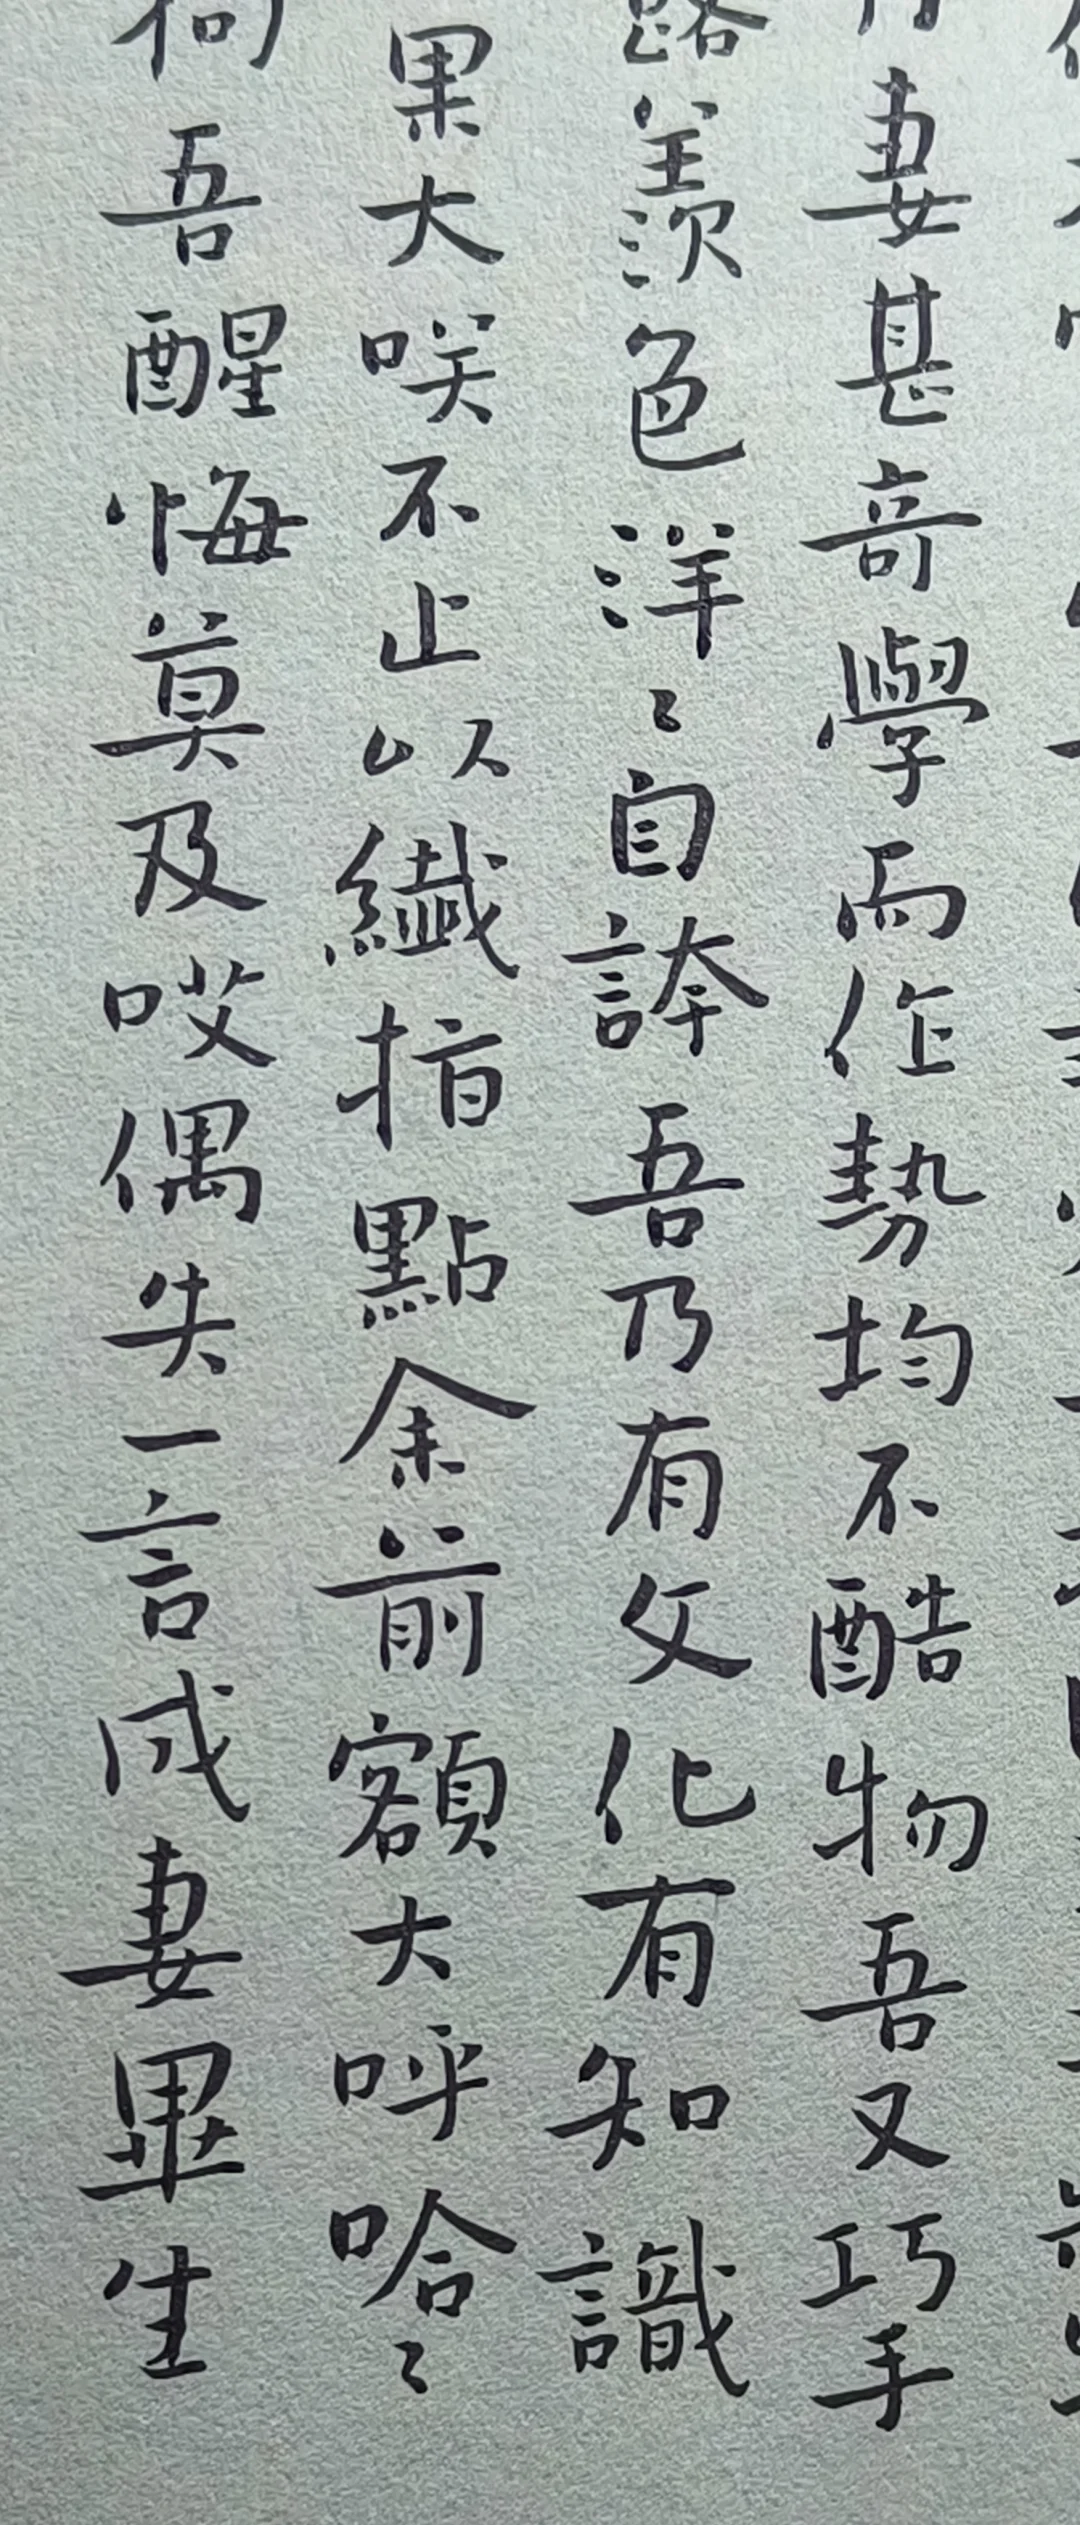 妻甚奇學而作勢均不酷物吾又巧手
露羨色洋〻自誇吾乃有文化有知識
果大咲不止以纖指點余前額大呼哈〻
吾醒悔莫及哎偶失一言成妻畢生